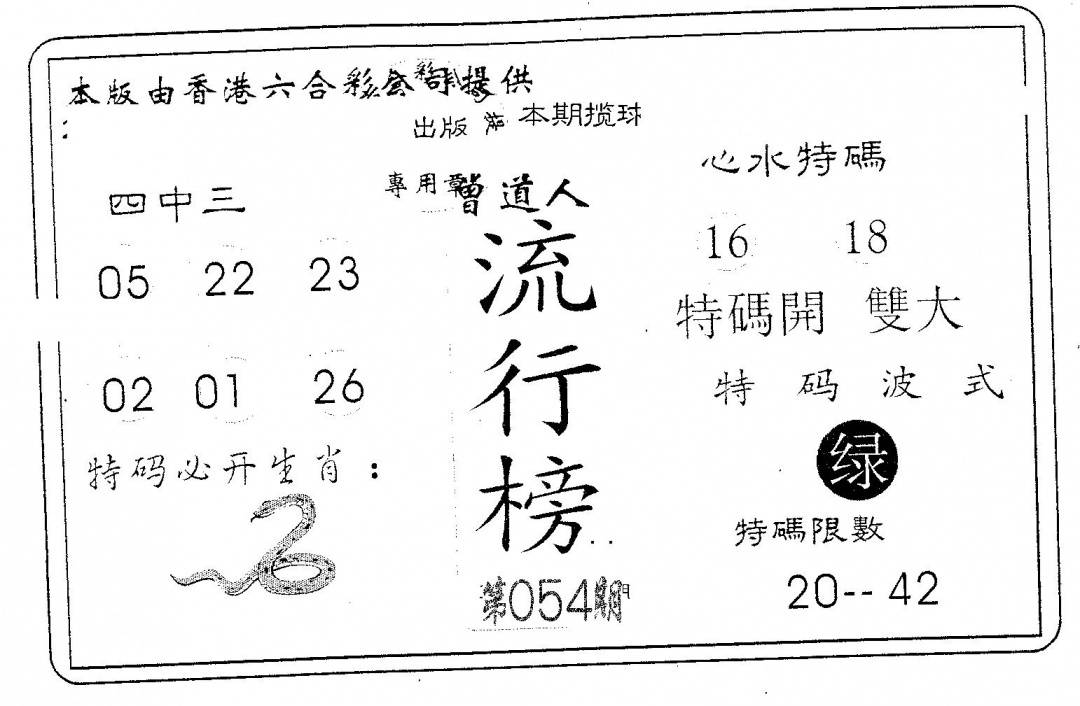 本版由香港六合彩公司提供
:
出版 本期搅珠
專用章
曾道人
流行榜
第054期
四中三
05 22 23
02 01 26
特码必开生肖：
心水特碼
16 18
特碼開 雙大
特码波式
绿
特碼限數
20-- 42